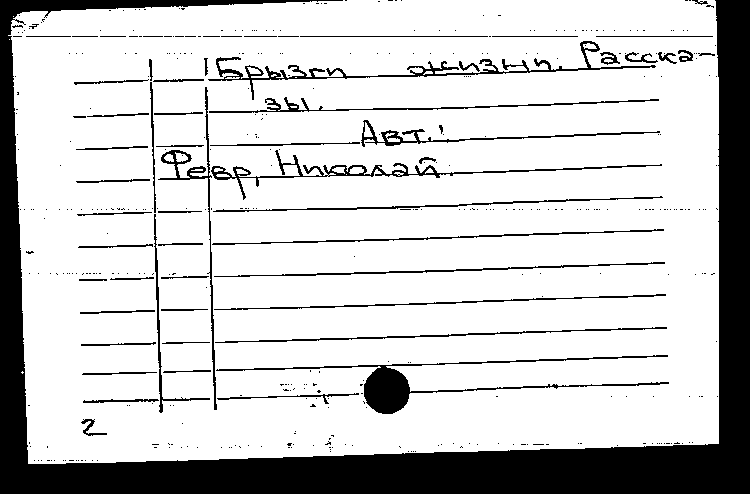 Брызги жизни. Расска-
зы.
Авт.:
Февр, Николай.
2